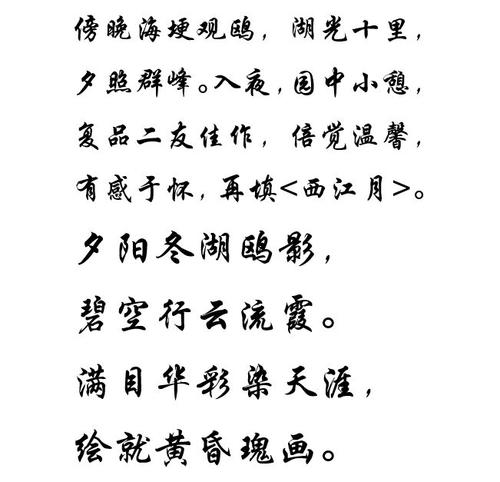 傍晚海埂观鸥，湖光十里，
夕照群峰。入夜，园中小憩，
复品二友佳作，倍觉温馨，
有感于怀，再填<西江月>。
夕阳冬湖鸥影，
碧空行云流霞。
满目华彩染天涯，
绘就黄昏瑰画。